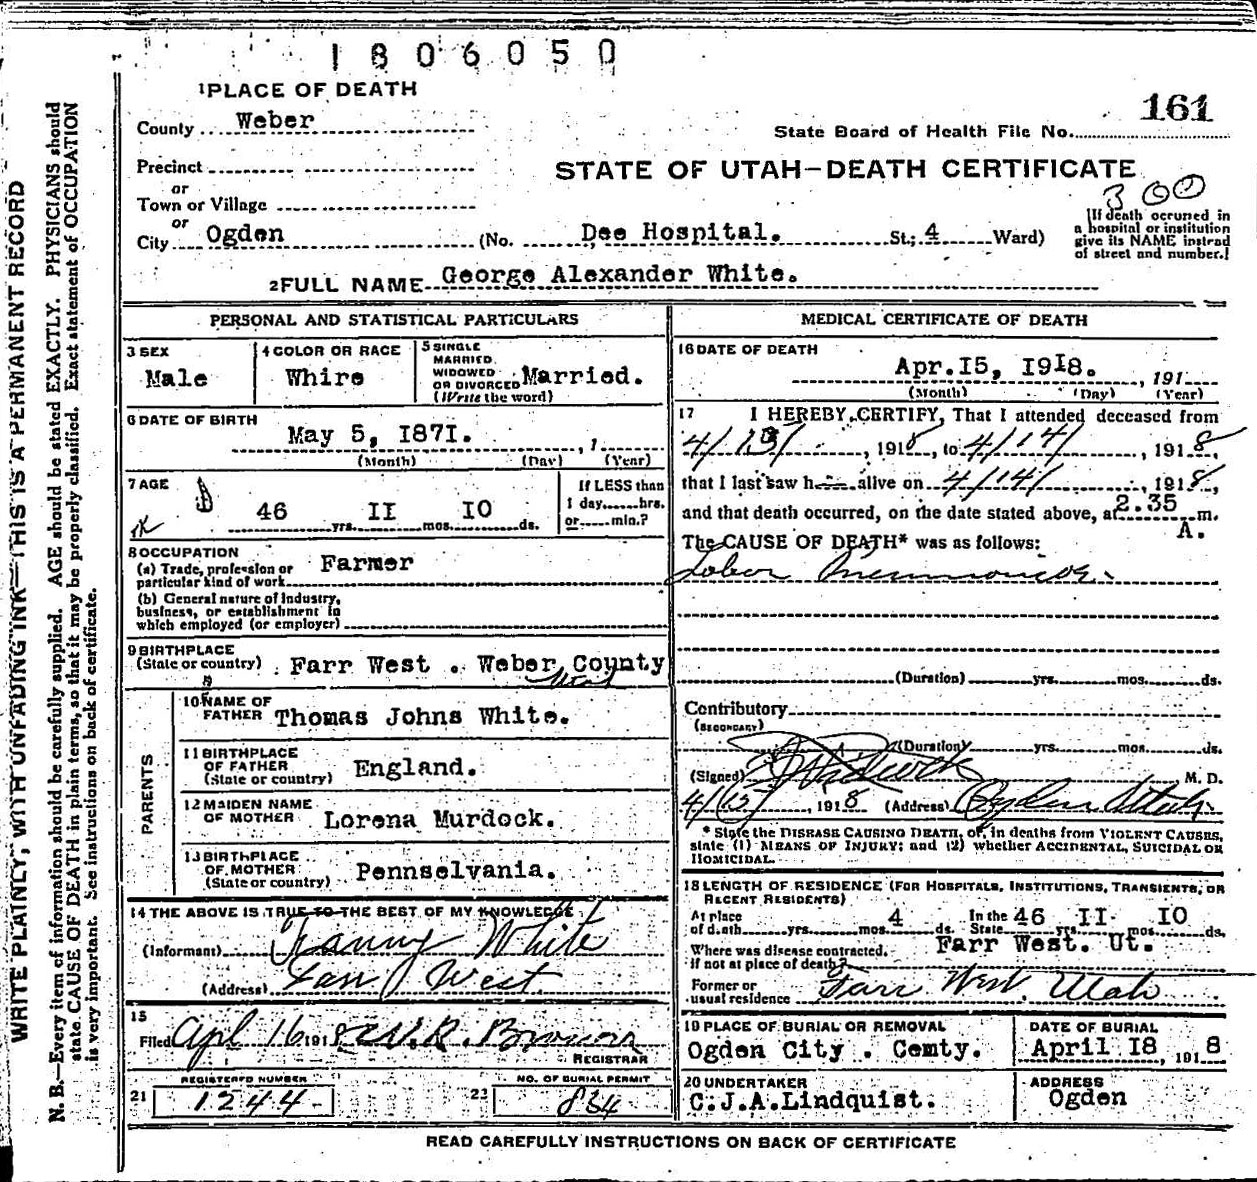 1806050
1 PLACE OF DEATH
161
County Weber
State Board of Health File No.
Precinct
STATE OF UTAH—DEATH CERTIFICATE
or
300
Town or Village
or
City Ogden (No. Dee Hospital. St.; 4 Ward)
[If death occurred in
a hospital or institution
give its NAME instead
of street and number.]
2 FULL NAME George Alexander White.
PERSONAL AND STATISTICAL PARTICULARS
3 SEX
Male
4 COLOR OR RACE
Whire
5 SINGLE
MARRIED
WIDOWED
OR DIVORCED Married.
(Write the word)
6 DATE OF BIRTH
May 5, I87I. , 1
(Month) (Day) (Year)
7 AGE
46 yrs. II mos. IO ds.
If LESS than
1 day, hrs.
or min.?
8 OCCUPATION
(a) Trade, profession or
particular kind of work Farmer
(b) General nature of Industry,
business, or establishment in
which employed (or employer)
9 BIRTHPLACE
(State or country) Farr West . Weber County
Utah
PARENTS
10 NAME OF
FATHER Thomas Johns White.
11 BIRTHPLACE
OF FATHER
(State or country) England.
12 MAIDEN NAME
OF MOTHER Lorena Murdock.
13 BIRTHPLACE
OF MOTHER
(State or country) Pennselvania.
14 THE ABOVE IS TRUE TO THE BEST OF MY KNOWLEDGE
(Informant) Fanny White
(Address) Farr West
15
Filed Apl 16 1918 W.R.
REGISTRAR
21 REGISTERED NUMBER
1244
22 NO. OF BURIAL PERMIT
834
MEDICAL CERTIFICATE OF DEATH
16 DATE OF DEATH
Apr.I5, I9I8. , 191
(Month) (Day) (Year)
17 I HEREBY CERTIFY, That I attended deceased from
4/13/ , 1918, to 4/14/ , 1918,
that I last saw h alive on 4/14/ , 1918,
and that death occurred, on the date stated above, at 2.35 m.
A.
The CAUSE OF DEATH* was as follows:
Lobar Pneumonia.
(Duration) yrs. mos. ds.
Contributory
(SECONDARY)
(Duration) yrs. mos. ds.
(Signed) M. D.
4/15/ , 1918 (Address) Ogden Utah.
* State the DISEASE CAUSING DEATH, or, in deaths from VIOLENT CAUSES,
state (1) MEANS OF INJURY; and (2) whether ACCIDENTAL, SUICIDAL OR
HOMICIDAL.
18 LENGTH OF RESIDENCE (FOR HOSPITALS, INSTITUTIONS, TRANSIENTS, OR
RECENT RESIDENTS)
At place
of death yrs. mos. 4 ds. In the State 46 yrs. II mos. IO ds.
Where was disease contracted,
if not at place of death? Farr West. Ut.
Former or
usual residence Farr West, Utah
19 PLACE OF BURIAL OR REMOVAL
Ogden City . Cemty.
DATE OF BURIAL
April I8, 1918
20 UNDERTAKER
C.J.A.Lindquist.
ADDRESS
Ogden
READ CAREFULLY INSTRUCTIONS ON BACK OF CERTIFICATE
WRITE PLAINLY, WITH UNFADING INK—THIS IS A PERMANENT RECORD
N. B.—Every item of information should be carefully supplied. AGE should be stated EXACTLY. PHYSICIANS should
state CAUSE OF DEATH in plain terms, so that it may be properly classified. Exact statement of OCCUPATION
is very important. See instructions on back of certificate.